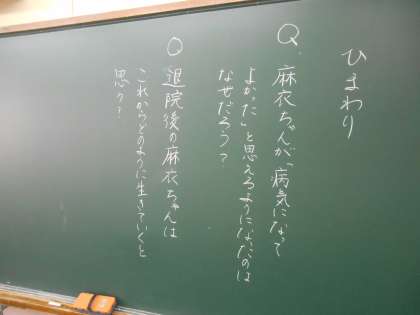 ひまわり
Q. 麻衣ちゃんが「病気になって
よかった」と思えるようになったのは
なぜだろう?
○ 退院後の麻衣ちゃんは
これからどのように生きていくと
思う?